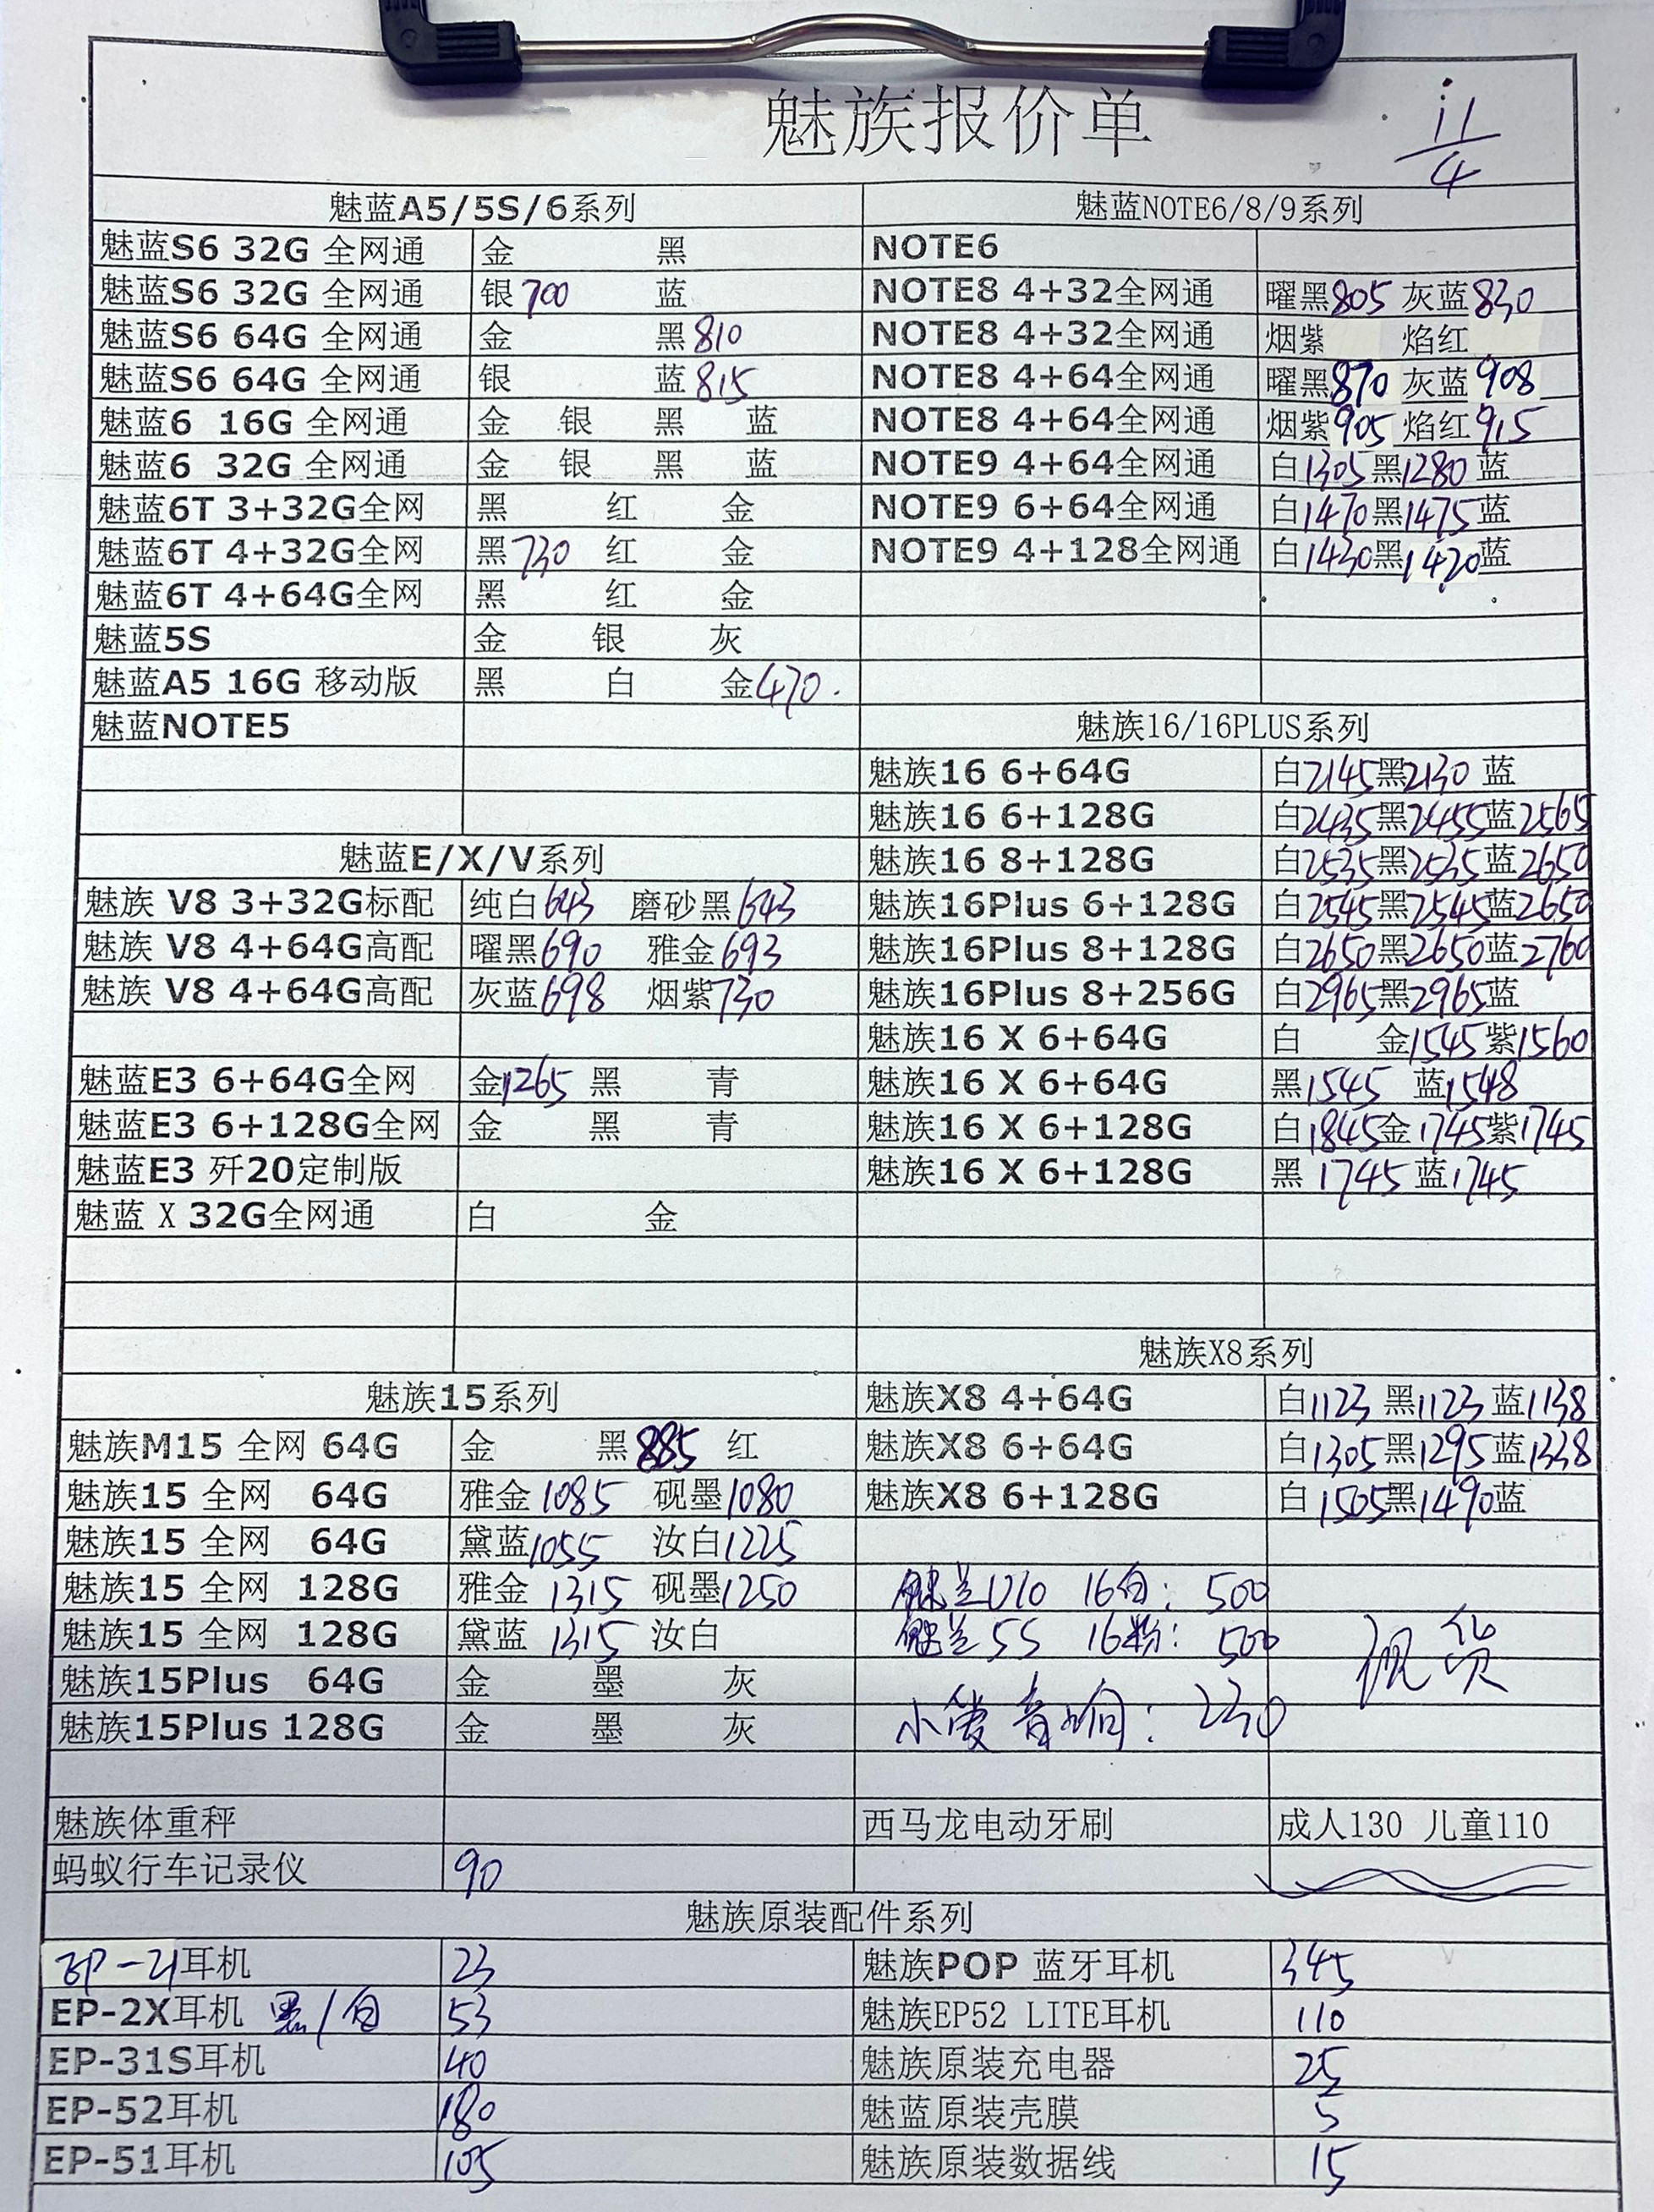 魅族报价单
11/4
魅蓝A5/5S/6系列
魅蓝S6 32G 全网通 金 黑
魅蓝S6 32G 全网通 银700 蓝
魅蓝S6 64G 全网通 金 黑810
魅蓝S6 64G 全网通 银 蓝815
魅蓝6 16G 全网通 金 银 黑 蓝
魅蓝6 32G 全网通 金 银 黑 蓝
魅蓝6T 3+32G全网 黑 红 金
魅蓝6T 4+32G全网 黑730 红 金
魅蓝6T 4+64G全网 黑 红 金
魅蓝5S 金 银 灰
魅蓝A5 16G 移动版 黑 白 金470.
魅蓝NOTE5
魅蓝E/X/V系列
魅族 V8 3+32G标配 纯白643 磨砂黑643
魅族 V8 4+64G高配 曜黑690 雅金693
魅族 V8 4+64G高配 灰蓝698 烟紫730
魅蓝E3 6+64G全网 金1265 黑 青
魅蓝E3 6+128G全网 金 黑 青
魅蓝E3 歼20定制版
魅蓝 X 32G全网通 白 金
魅族15系列
魅族M15 全网 64G 金 黑885 红
魅族15 全网 64G 雅金1085 砚墨1080
魅族15 全网 64G 黛蓝1055 汝白1225
魅族15 全网 128G 雅金1315 砚墨1250
魅族15 全网 128G 黛蓝1315 汝白
魅族15Plus 64G 金 墨 灰
魅族15Plus 128G 金 墨 灰
魅族体重秤
蚂蚁行车记录仪 90
魅蓝NOTE6/8/9系列
NOTE6
NOTE8 4+32全网通 曜黑805 灰蓝830
NOTE8 4+32全网通 烟紫 焰红
NOTE8 4+64全网通 曜黑870 灰蓝908
NOTE8 4+64全网通 烟紫905 焰红915
NOTE9 4+64全网通 白1305黑1280 蓝
NOTE9 6+64全网通 白1470黑1475蓝
NOTE9 4+128全网通 白1430黑1420蓝
魅族16/16PLUS系列
魅族16 6+64G 白2145黑2130 蓝
魅族16 6+128G 白2435黑2455蓝2565
魅族16 8+128G 白2535黑2535蓝2650
魅族16Plus 6+128G 白2545黑2545蓝2650
魅族16Plus 8+128G 白2650黑2650蓝2760
魅族16Plus 8+256G 白2965黑2965蓝
魅族16 X 6+64G 白 金1545紫1560
魅族16 X 6+64G 黑1545 蓝1548
魅族16 X 6+128G 白1845金1745紫1745
魅族16 X 6+128G 黑1745 蓝1745
魅族X8系列
魅族X8 4+64G 白1123 黑1123 蓝1138
魅族X8 6+64G 白1305黑1295蓝1338
魅族X8 6+128G 白1505黑1490蓝
魅兰U10 16白：500
魅兰5S 16粉：500
现货
小爱音响：230
西马龙电动牙刷 成人130 儿童110
魅族原装配件系列
EP-21耳机 23
EP-2X耳机 黑/白 53
EP-31S耳机 40
EP-52耳机 180
EP-51耳机 105
魅族POP 蓝牙耳机 345
魅族EP52 LITE耳机 110
魅族原装充电器 25
魅蓝原装壳膜 5
魅族原装数据线 15